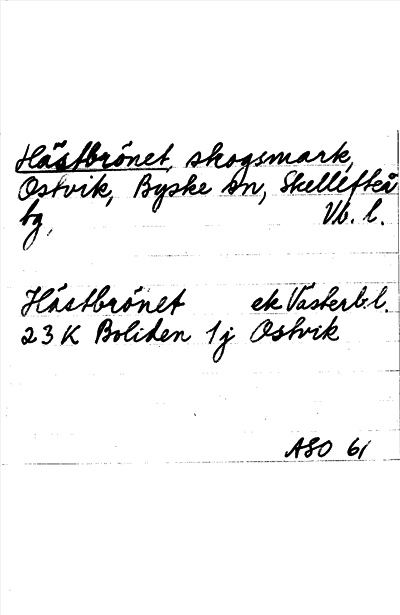 Hästbrönet, skogsmark,
Ostvik, Byske sn, Skellefteå
tg, Vb. l.
Hästbrönet ek Västerb.l.
23 K Boliden 1j Ostvik
ASO 61